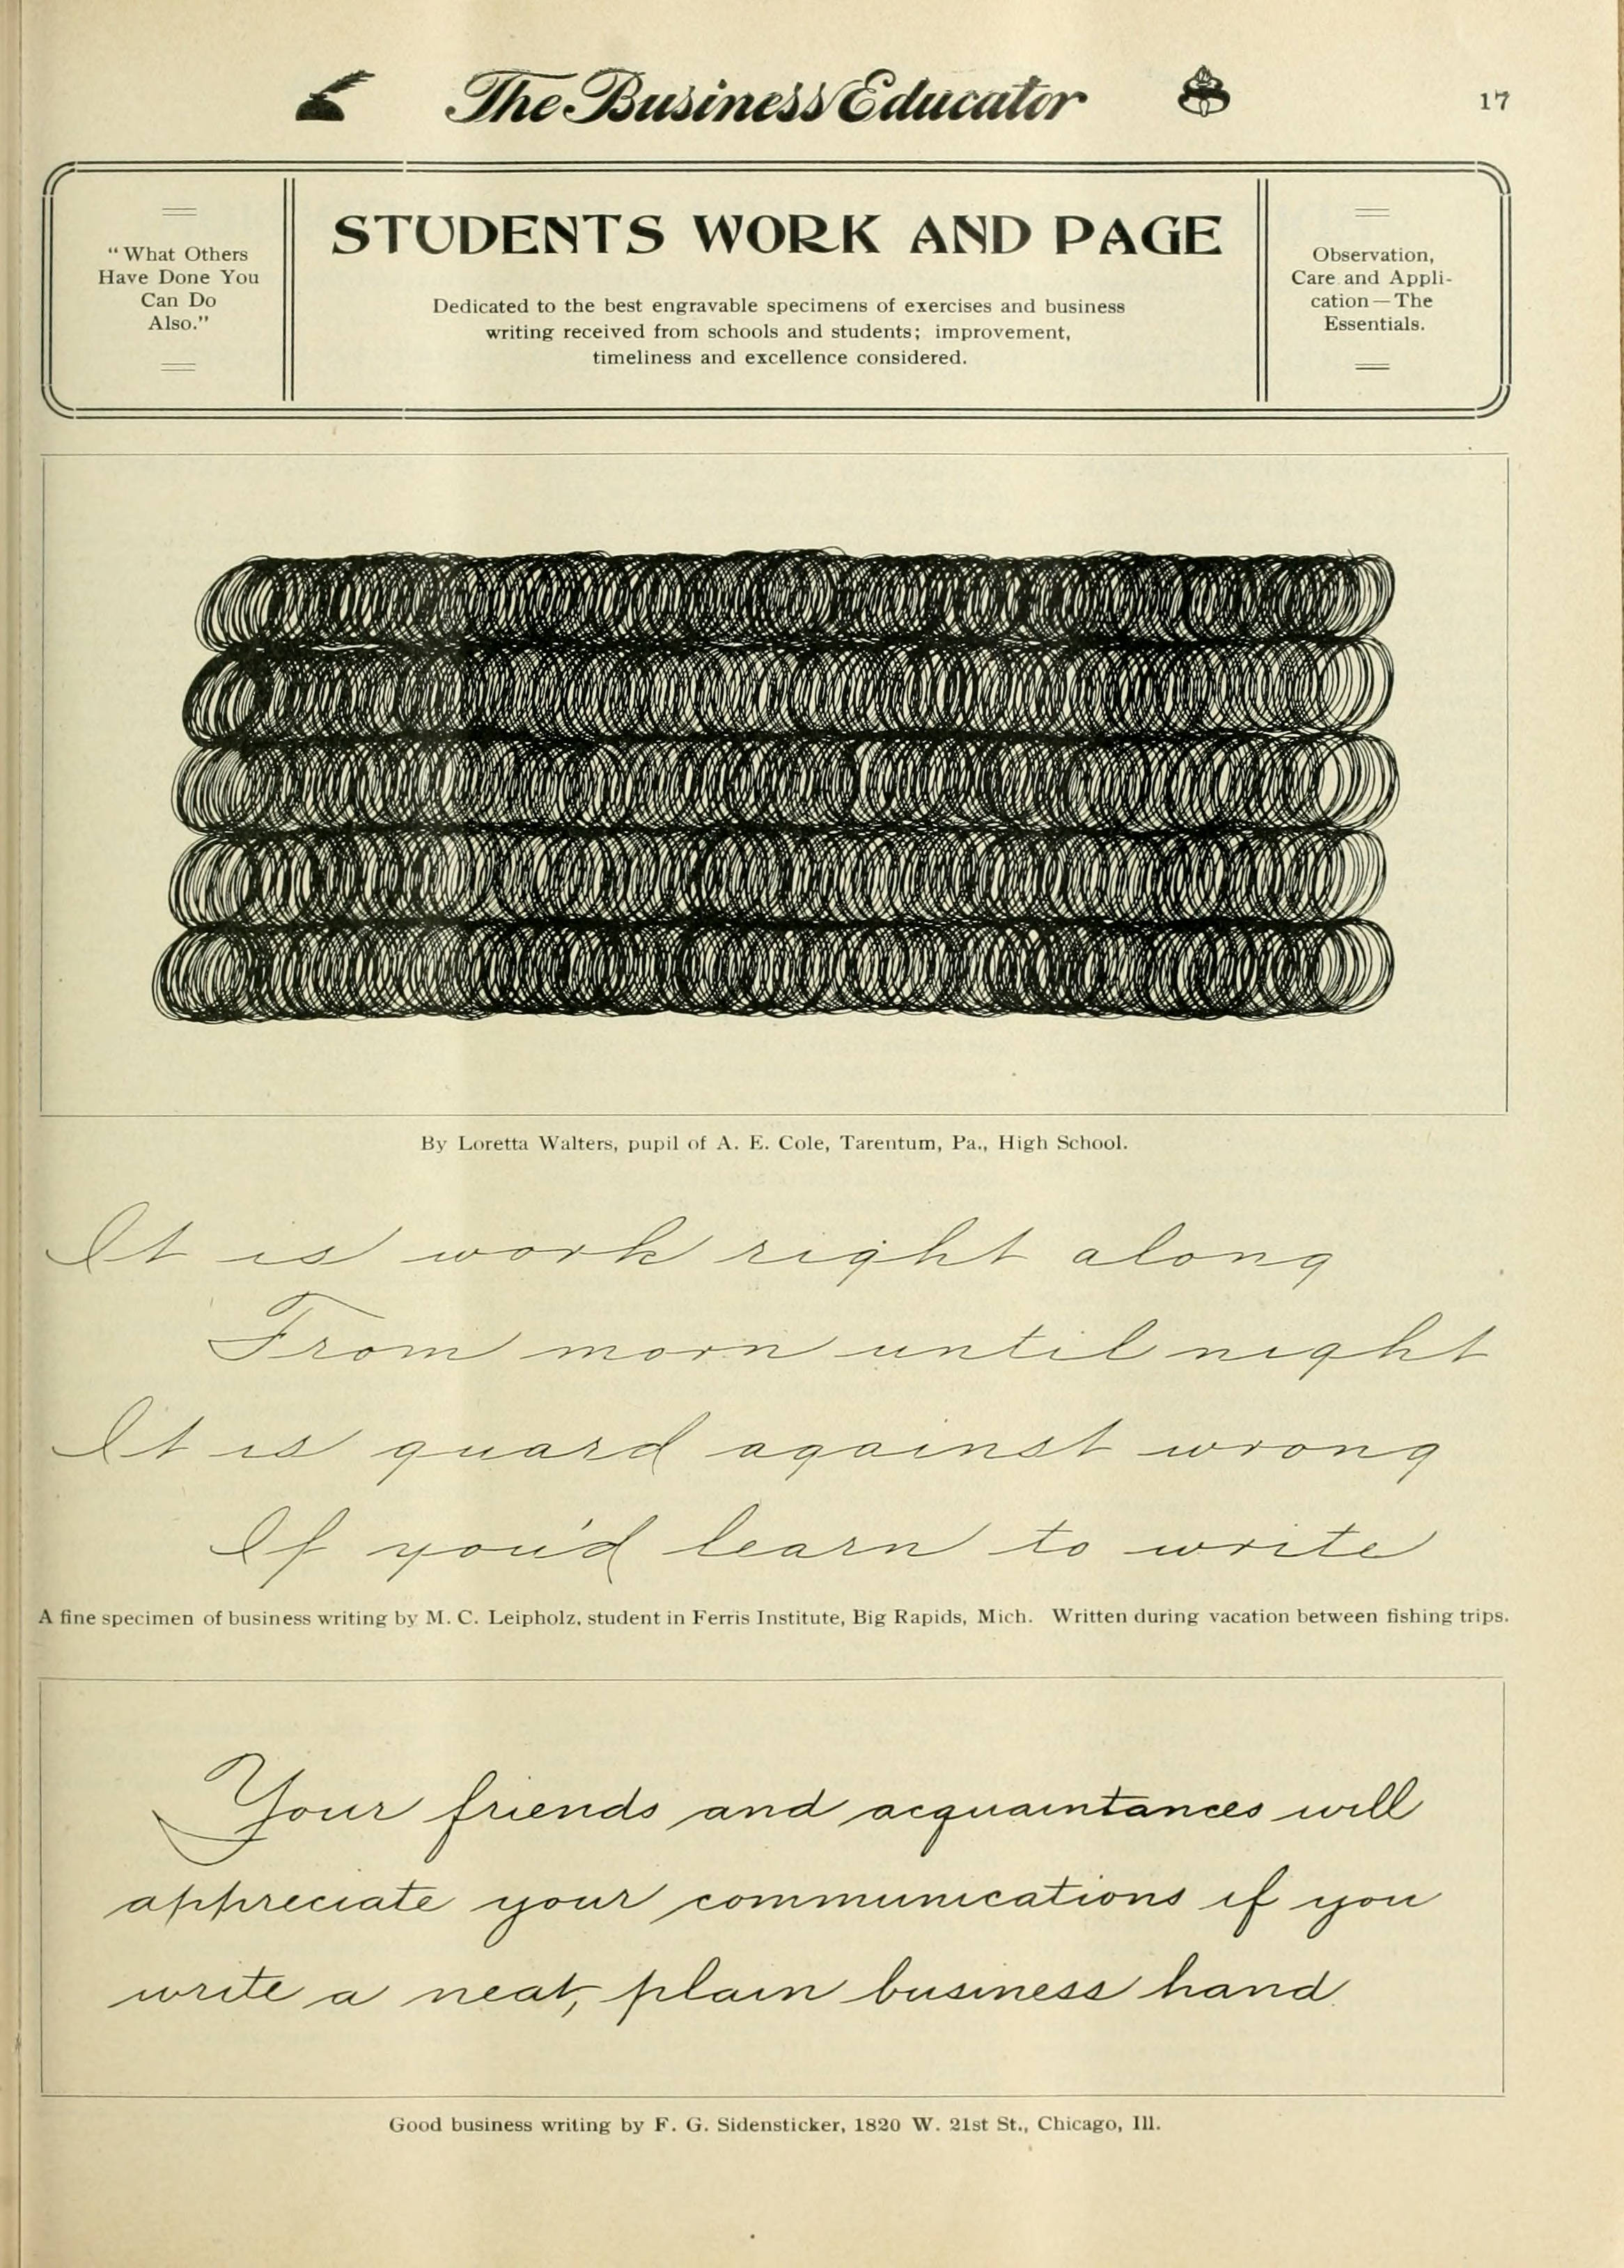 The Business Educator
17
"What Others
Have Done You
Can Do
Also."
STUDENTS WORK AND PAGE
Dedicated to the best engravable specimens of exercises and business
writing received from schools and students; improvement,
timeliness and excellence considered.
Observation,
Care and Appli-
cation—The
Essentials.
By Loretta Walters, pupil of A. E. Cole, Tarentum, Pa., High School.
It is work right along
From morn until night
It is guard against wrong
If you'd learn to write
A fine specimen of business writing by M. C. Leipholz, student in Ferris Institute, Big Rapids, Mich. Written during vacation between fishing trips.
Your friends and acquaintances will
appreciate your communications if you
write a neat, plain business hand.
Good business writing by F. G. Sidensticker, 1820 W. 21st St., Chicago, Ill.